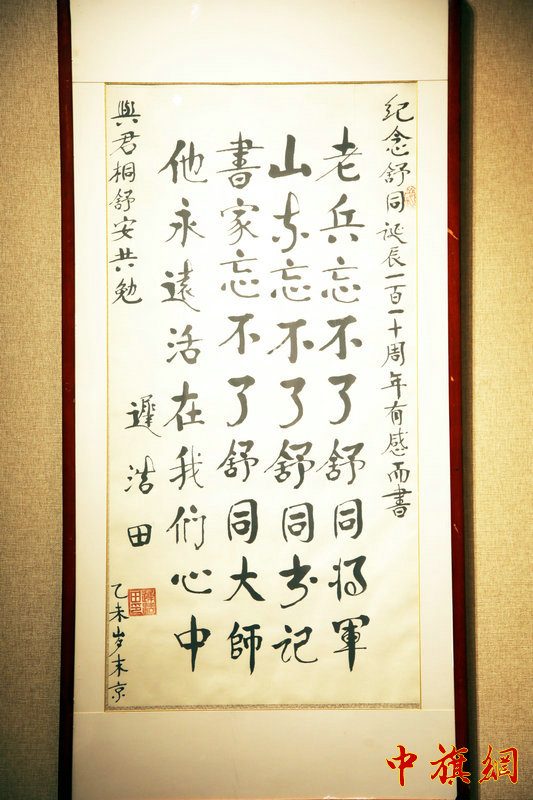 纪念舒同诞辰一百一十周年有感而書
老兵忘不了舒同将軍
山东忘不了舒同书记
書家忘不了舒同大師
他永遠活在我们心中
與君桐舒安共勉
遲浩田
乙未岁末京
中旗網